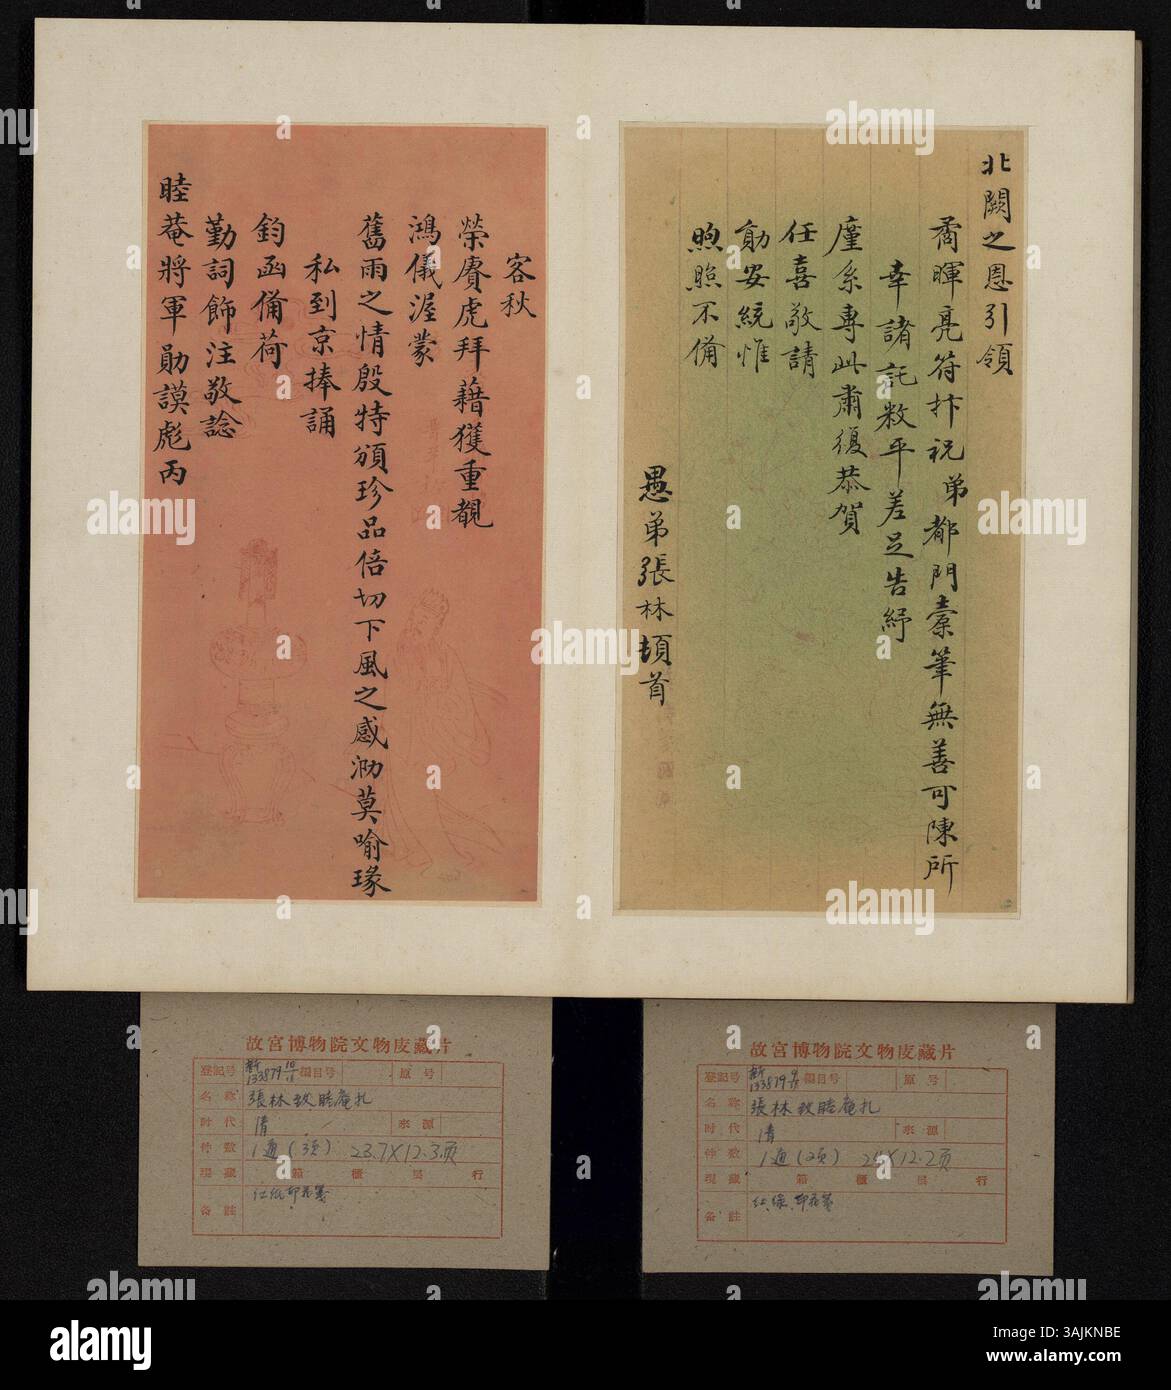 北闕之恩引領
矞暉亮符抃祝弟都門橐筆無善可陳所
幸諸託敉平差足告紓
廑系專此肅復恭賀
任喜敬請
勛安統惟
煦照不備
愚弟張林頓首
客秋
榮賡虎拜藉獲重覩
鴻儀渥蒙
舊雨之情殷特頒珍品倍切下風之感泐莫喻瑑
私到京捧誦
鈞函備荷
勤詞飾注敬諗
睦菴將軍勛謨彪丙
故宮博物院文物庋藏片
登記号 新133879 10/15 編目号 原号
名称 張林致睦庵札
时代 清 来源
件数 1通(3頁) 23.7X12.3頁
現藏 箱 櫃 层 行
备註 红纸印花箋
故宮博物院文物庋藏片
登記号 新133879 9/15 編目号 原号
名称 張林致睦庵札
时代 清 来源
件数 1通(2頁) 24X12.2頁
現藏 箱 櫃 层 行
备註 红、绿、印花箋
alamy
Image ID: 3AJKNBE
www.alamy.com